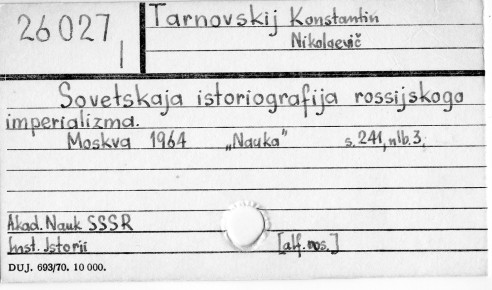 26 027,
I
Tarnovskij Konstantin
Nikolaevič
Sovetskaja istoriografija rossijskogo
imperializma.
Moskva 1964 „Nauka" s. 241, nlb. 3.
Akad. Nauk SSSR
Inst. Istorii [alf. nos.]
DUJ. 693/70. 10 000.